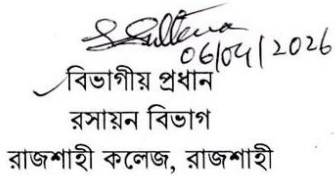 S Sultana
06/04/2026
বিভাগীয় প্রধান
রসায়ন বিভাগ
রাজশাহী কলেজ, রাজশাহী